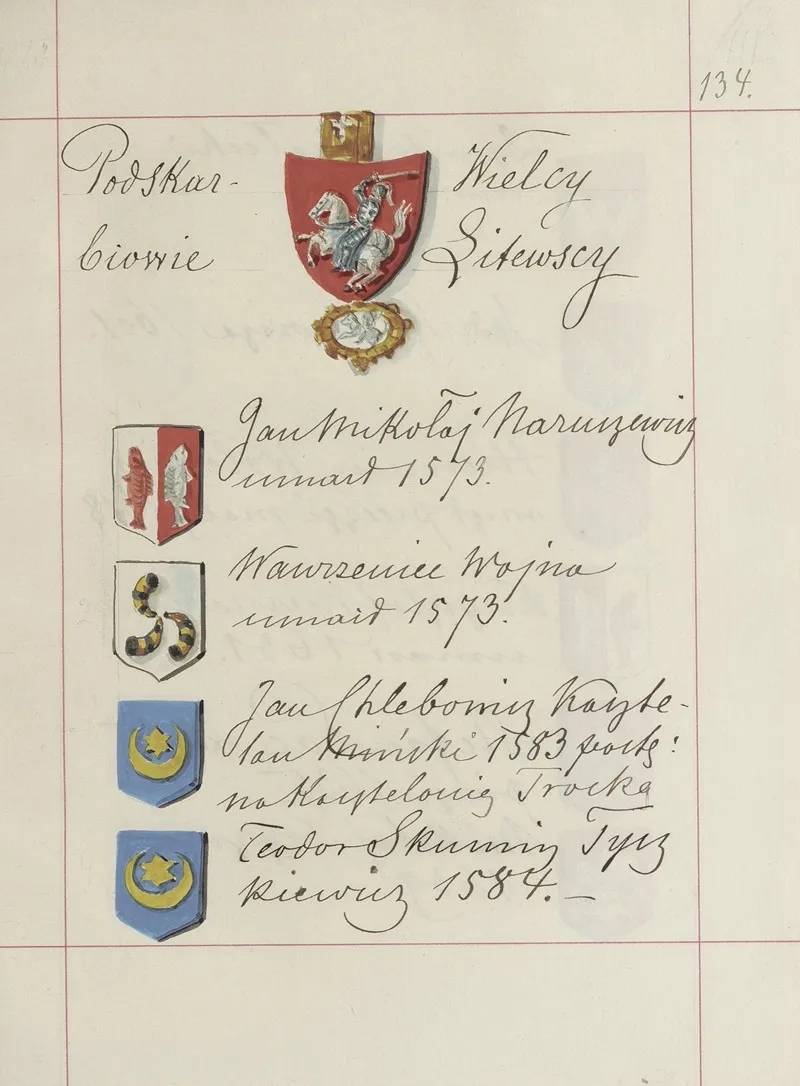 134.
Podskar-
biowie
Wielcy
Litewscy
Jan Mikołaj Naruszewicz
umarł 1573.
Wawrzeniec Wojna
umarł 1573.
Jan Chlebowicz Kaszte-
lan Miński 1583 postą:
na Kasztelonię Trocką
Teodor Skumin Tysz
kiewicz 1584. —